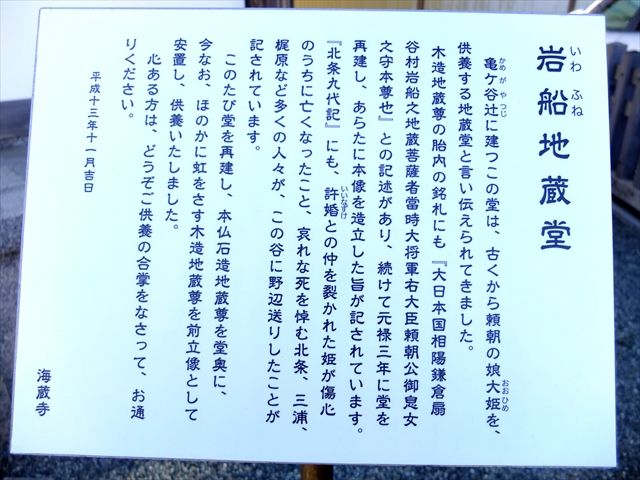 岩船地蔵堂
いわ ふね
亀ケ谷辻に建つこの堂は、古くから頼朝の娘大姫を、
かめがやつじ
おおひめ
供養する地蔵堂と言い伝えられてきました。
木造地蔵尊の胎内の銘札にも『大日本国相陽鎌倉扇
谷村岩船之地蔵菩薩者當時大将軍右大臣頼朝公御息女
之守本尊也』との記述があり、続けて元禄三年に堂を
再建し、あらたに本像を造立した旨が記されています。
『北条九代記』にも、許婚との仲を裂かれた姫が傷心
いいなずけ
のうちに亡くなったこと、哀れな死を悼む北条、三浦、
梶原など多くの人々が、この谷に野辺送りしたことが
記されています。
このたび堂を再建し、本仏石造地蔵尊を堂奥に、
今なお、ほのかに虹をさす木造地蔵尊を前立像として
安置し、供養いたしました。
心ある方は、どうぞご供養の合掌をなさって、お通
りください。
平成十三年十一月吉日
海蔵寺